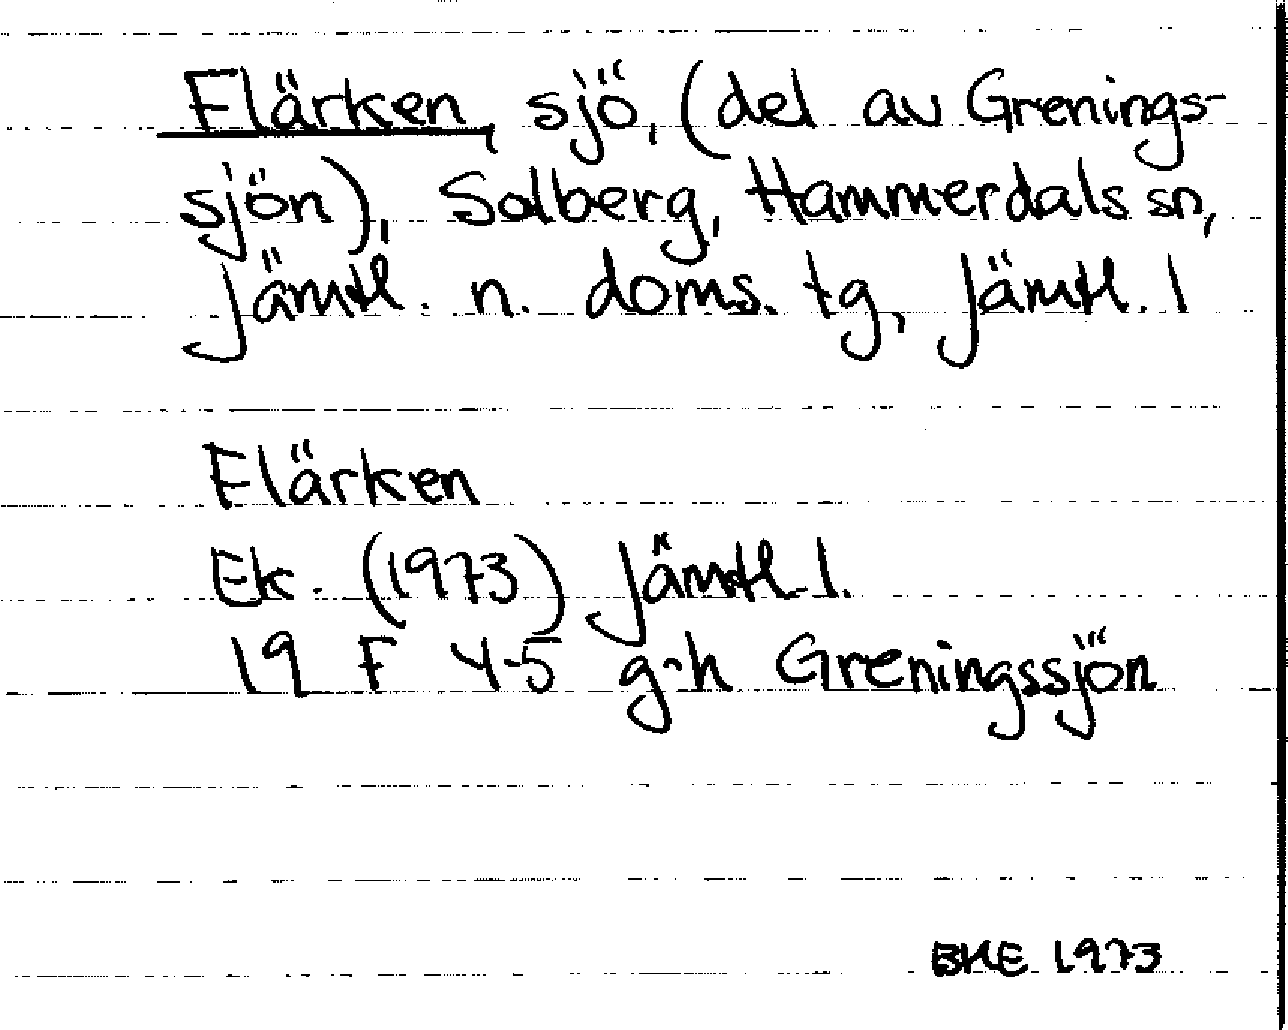 Flärken, sjö, (del av Grenings-
sjön), Solberg, Hammerdals sn,
Jämtl. n. doms. tg, Jämtl. l
Flärken
Ek. (1973) Jämtl. l.
19 F 4-5 g-h Greningssjön
BHE 1973